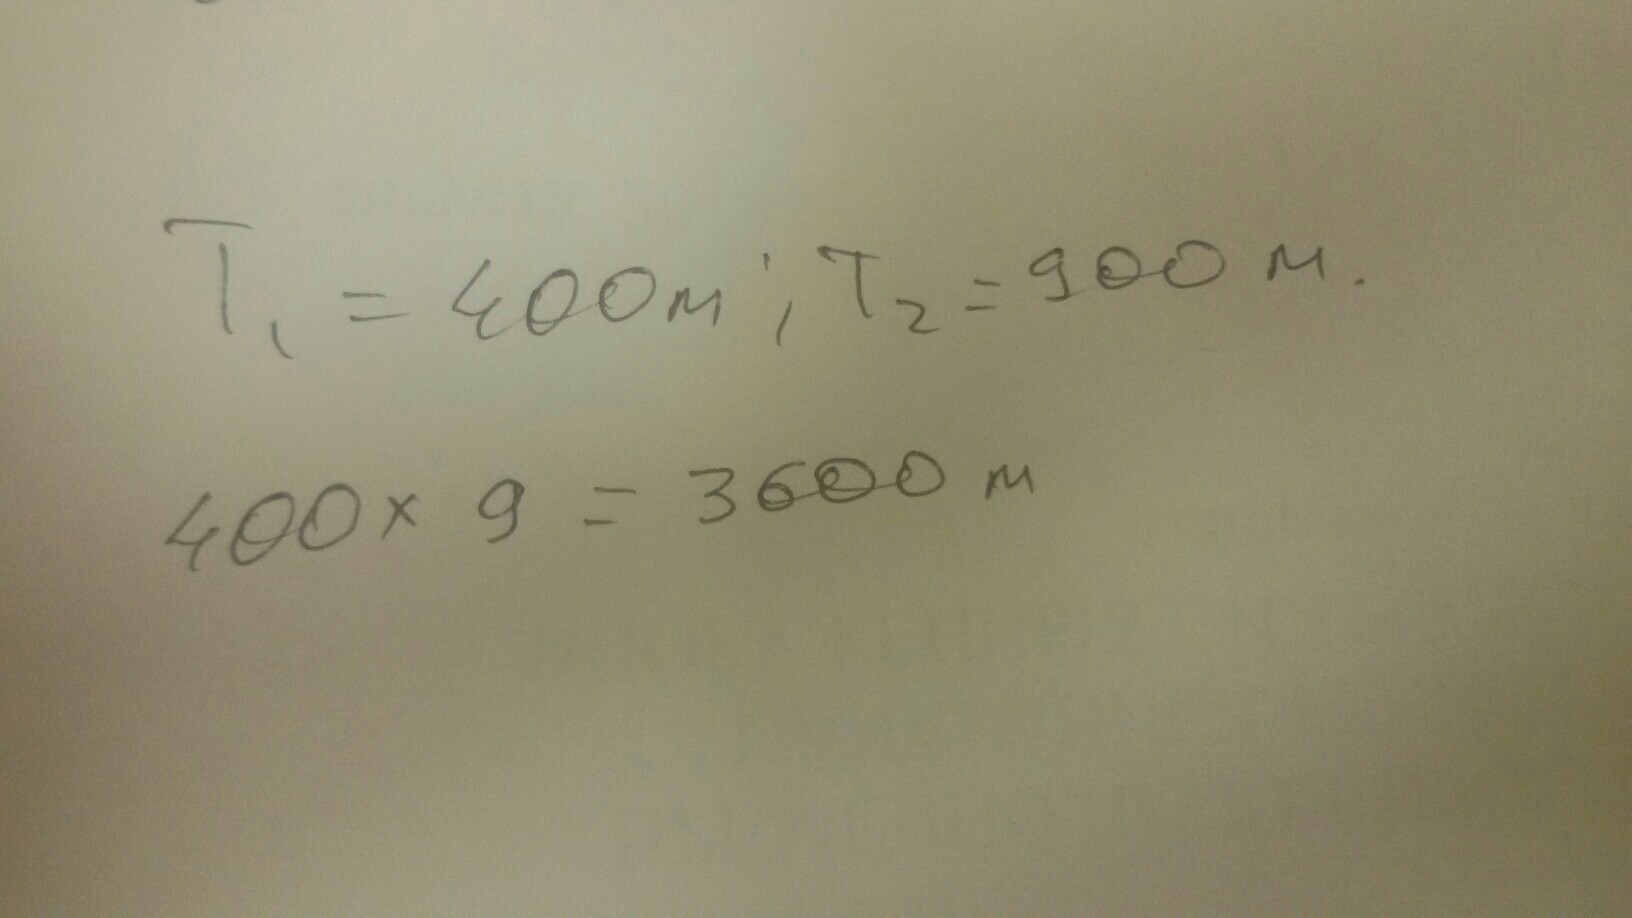 T₁ = 400м; T₂ = 900 м.
400 × 9 = 3600 м